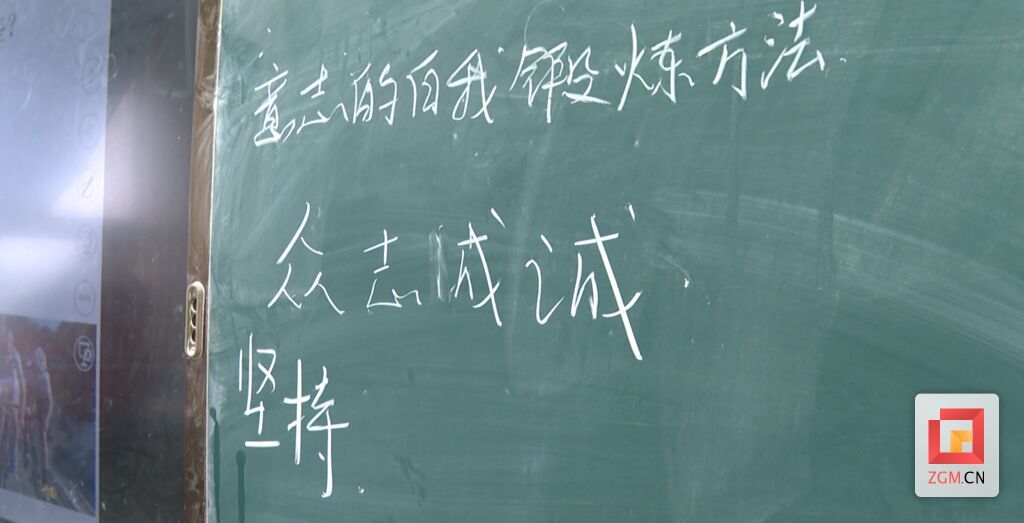 意志的自我锻炼方法
众志成诚
坚持
ZGM.CN